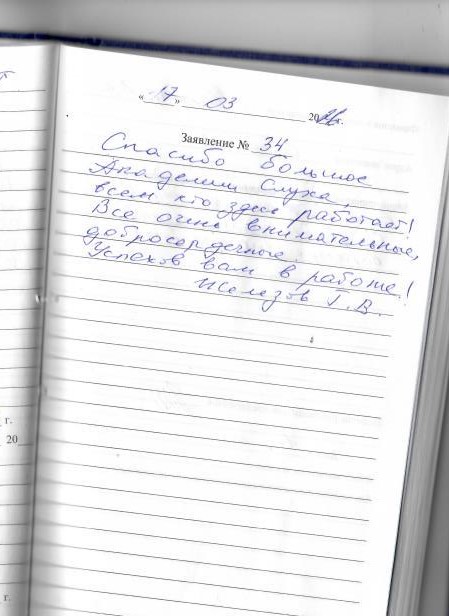 «17» 03 20 г.
Заявление № 34
Спасибо большое
Академии Слуха,
всем кто здесь работает!
Все очень внимательные,
добросердечные.
Успехов вам в работе!
Железов Г.В.
г.
20
г.